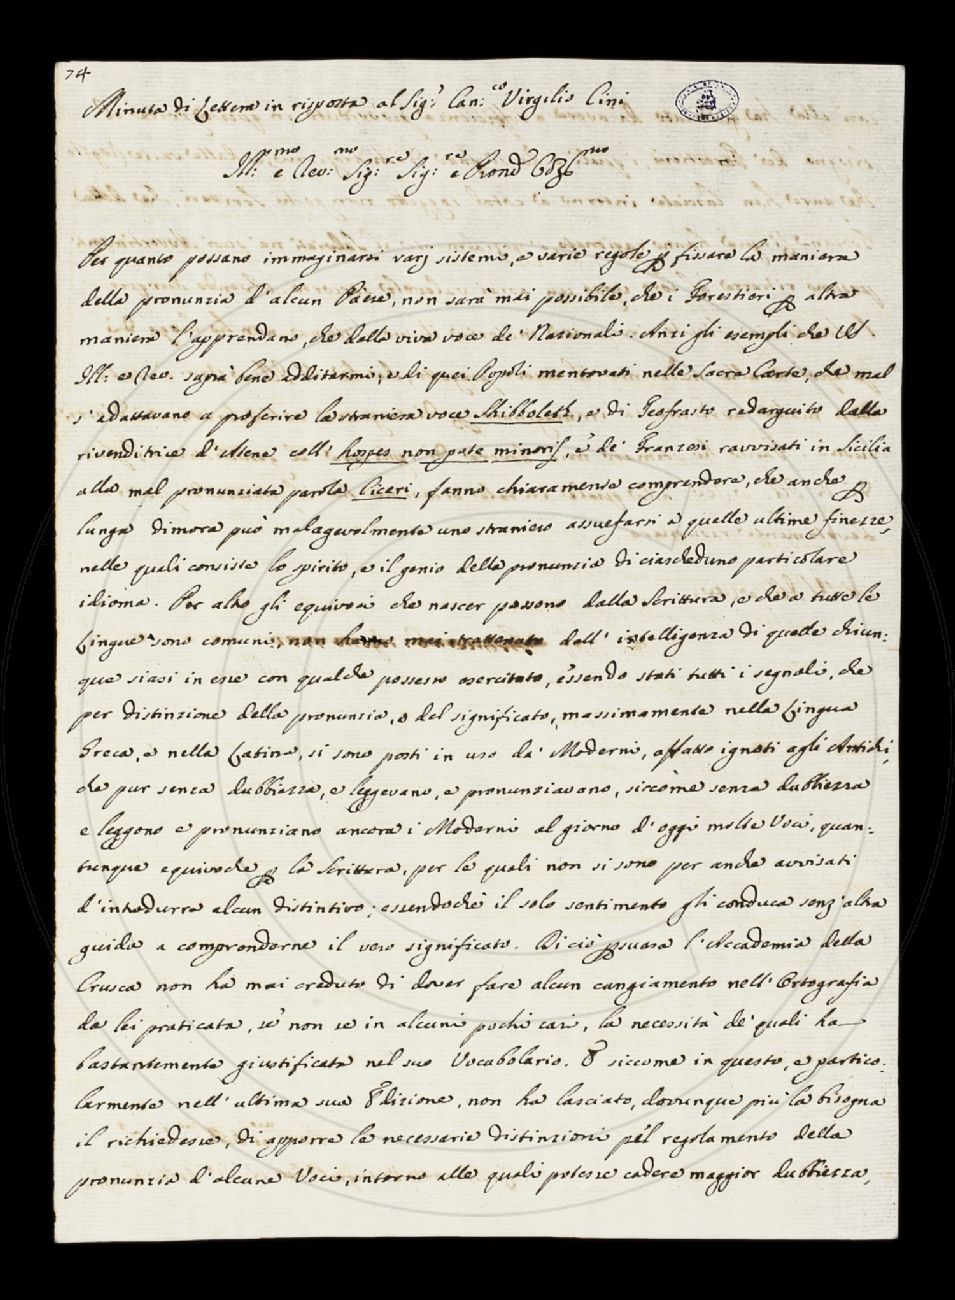 74
Minuta di Lettera in risposta al Sig.r Can.co Virgilio Cini
Ill.mo e Rev.mo Sig.re Sig.re e Pron.
Per quanto possano immaginarsi varj sistemi, e varie regole p fissare la maniera
della pronunzia d'alcun Paese, non sarà mai possibile, che i Forestieri p altra
maniera l'apprendano, che dalla viva voce de' Nazionali. Anzi gli esempli che VS
Ill: e Rev. saprà bene additarmi, e di quei Popoli mentovati nelle Sacre Carte, che mal
s'adattavano a proferire la straniera voce Shibboleth, e di Teofrasto redarguito dalla
rivenditrice d'Atene coll' hospes non pote minoris, e de' Franzesi ravvisati in Sicilia
alla mal pronunziata parola Ciceri, fanno chiaramente comprendere, che anche p
lunga dimora può malagevolmente uno straniero assuefarsi a quelle ultime finezze,
nelle quali consiste lo spirito, e il genio della pronunzia di ciascheduno particolare
idioma. Per altro gli equivoci che nascer possono dalla Scrittura, e che a tutte le
Lingue sono comuni, non hanno mai trattenuto dall' intelligenza di quelle chiun:
que siasi in esse con qualche possesso esercitato, essendo stati tutti i segnali, che
per distinzione della pronunzia, o del significato, massimamente nella Lingua
Greca, e nella Latina, si sono posti in uso da' Moderni, affatto ignoti agli Antichi,
che pur senza dubbiezza, e leggevano, e pronunziavano, siccome senza dubbiezza
e leggono e pronunziano ancora i Moderni al giorno d'oggi molte Voci, quan:
tunque equivoche p la Scrittura, per le quali non si sono per anche avvisati
d'introdurre alcun distintivo; essendochè il solo sentimento gli conduca senz'altra
guida a comprenderne il vero significato. Di ciò psuasa l'Accademia della
Crusca non ha mai creduto di dover fare alcun cangiamento nell' Ortografia
da lei praticata, se non se in alcuni pochi casi, la necessità de' quali ha
bastantemente giustificata nel suo Vocabolario. E siccome in questo, e partico:
larmente nell' ultima sua Edizione, non ha lasciato, dovunque più la bisogna
il richiedesse, di apporre le necessarie distinzioni pel regolamento della
pronunzia d'alcune Voci, intorno alle quali potesse cadere maggior dubbiezza,